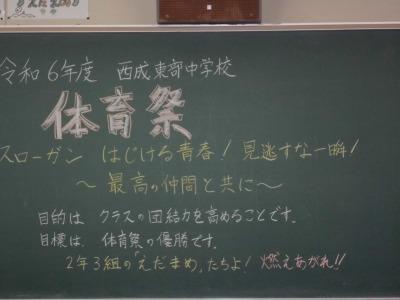 令和6年度 西成東部中学校
体育祭
スローガン はじける青春！見逃すな一瞬！
～最高の仲間と共に～
目的は クラスの団結力を高めることです。
目標は、体育祭の優勝です。
2年3組の「えだまめ」たちよ！燃えあがれ!!